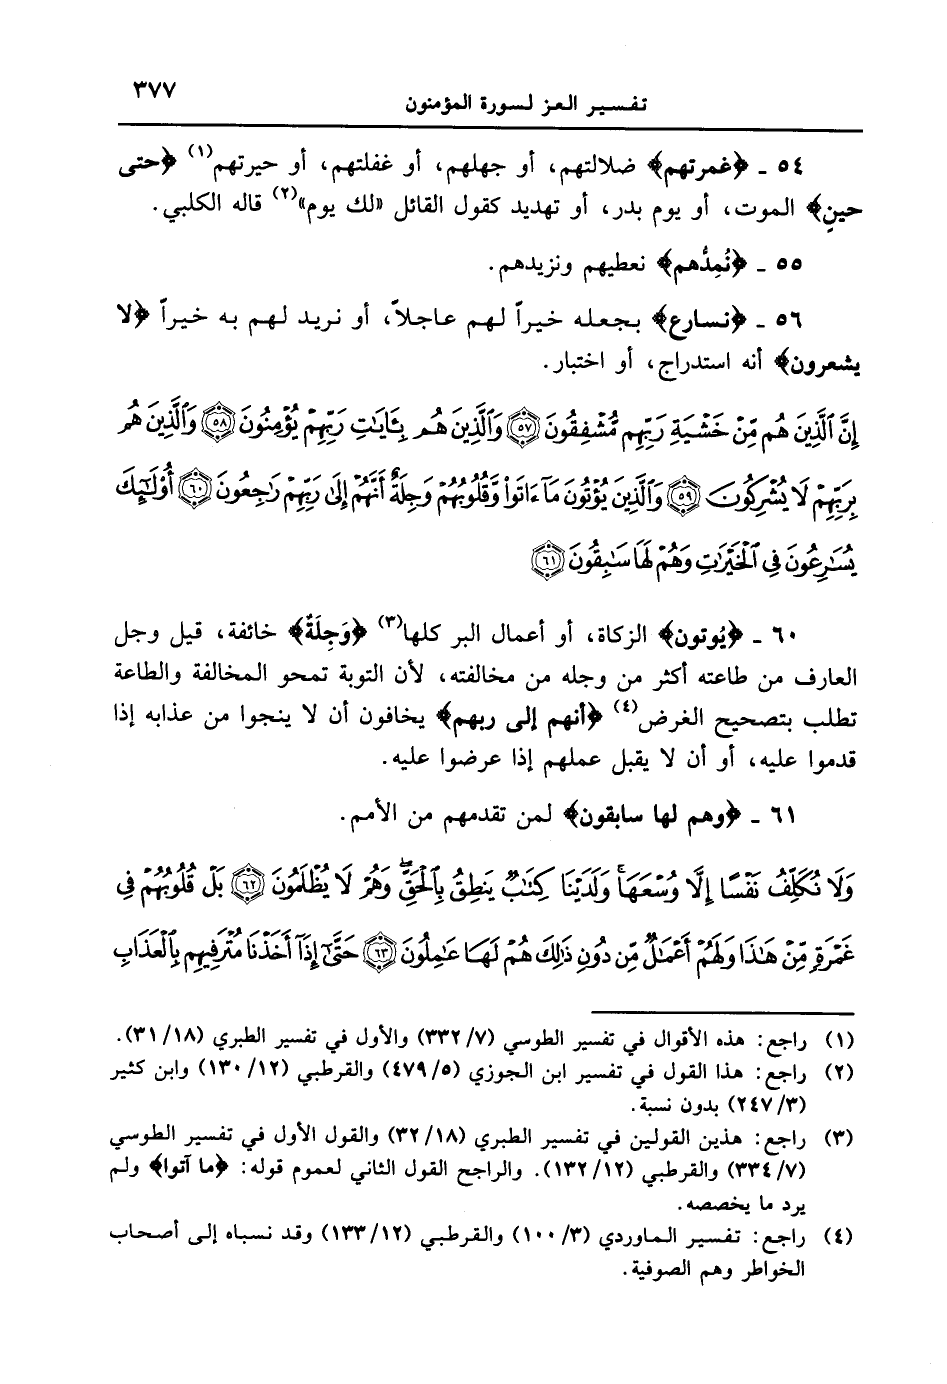 ٣٧٧
تفسير العز لسورة المؤمنون
٥٤ ـ ﴿غمرتهم﴾ ضلالتهم، أو جهلهم، أو غفلتهم، أو حيرتهم(١) ﴿حتى
حينٍ﴾ الموت، أو يوم بدر، أو تهديد كقول القائل «لك يوم»(٢) قاله الكلبي.
٥٥ ـ ﴿نُمِدُّهم﴾ نعطيهم ونزيدهم.
٥٦ ـ ﴿نسارع﴾ بجعله خيراً لهم عاجلاً، أو نريد لهم به خيراً ﴿لا
يشعرون﴾ أنه استدراج، أو اختبار.
إِنَّ ٱلَّذِينَ هُم مِّنْ خَشْيَةِ رَبِّهِم مُّشْفِقُونَ ﴿٥٧﴾ وَٱلَّذِينَ هُم بِـَٔايَـٰتِ رَبِّهِمْ يُؤْمِنُونَ ﴿٥٨﴾ وَٱلَّذِينَ هُم
بِرَبِّهِمْ لَا يُشْرِكُونَ ﴿٥٩﴾ وَٱلَّذِينَ يُؤْتُونَ مَآ ءَاتَوا۟ وَّقُلُوبُهُمْ وَجِلَةٌ أَنَّهُمْ إِلَىٰ رَبِّهِمْ رَٰجِعُونَ ﴿٦٠﴾ أُو۟لَـٰٓئِكَ
يُسَـٰرِعُونَ فِى ٱلْخَيْرَٰتِ وَهُمْ لَهَا سَـٰبِقُونَ ﴿٦١﴾
٦٠ ـ ﴿يُوتون﴾ الزكاة، أو أعمال البر كلها(٣) ﴿وَجِلَةٌ﴾ خائفة، قيل وجل
العارف من طاعته أكثر من وجله من مخالفته، لأن التوبة تمحو المخالفة والطاعة
تطلب بتصحيح الغرض(٤) ﴿أنهم إلى ربهم﴾ يخافون أن لا ينجوا من عذابه إذا
قدموا عليه، أو أن لا يقبل عملهم إذا عرضوا عليه.
٦١ ـ ﴿وهم لها سابقون﴾ لمن تقدمهم من الأمم.
وَلَا نُكَلِّفُ نَفْسًا إِلَّا وُسْعَهَا ۖ وَلَدَيْنَا كِتَـٰبٌ يَنطِقُ بِٱلْحَقِّ ۚ وَهُمْ لَا يُظْلَمُونَ ﴿٦٢﴾ بَلْ قُلُوبُهُمْ فِى
غَمْرَةٍ مِّنْ هَـٰذَا وَلَهُمْ أَعْمَـٰلٌ مِّن دُونِ ذَٰلِكَ هُمْ لَهَا عَـٰمِلُونَ ﴿٦٣﴾ حَتَّىٰٓ إِذَآ أَخَذْنَا مُتْرَفِيهِم بِٱلْعَذَابِ
(١) راجع: هذه الأقوال في تفسير الطوسي (٣٣٢/٧) والأول في تفسير الطبري (٣١/١٨).
(٢) راجع: هذا القول في تفسير ابن الجوزي (٤٧٩/٥) والقرطبي (١٣٠/١٢) وابن كثير
(٢٤٧/٣) بدون نسبة.
(٣) راجع: هذين القولين في تفسير الطبري (٣٢/١٨) والقول الأول في تفسير الطوسي
(٣٣٤/٧) والقرطبي (١٣٢/١٢). والراجح القول الثاني لعموم قوله: ﴿ما آتوا﴾ ولم
يرد ما يخصصه.
(٤) راجع: تفسير الماوردي (١٠٠/٣) والقرطبي (١٣٣/١٢) وقد نسباه إلى أصحاب
الخواطر وهم الصوفية.